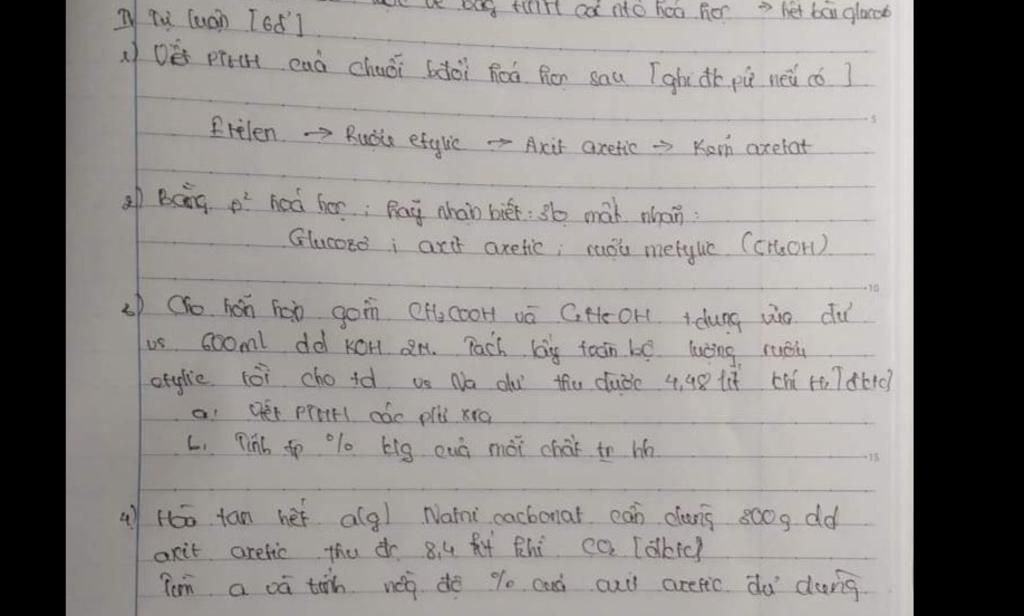 hết bài glucoz
IV Tự luận [6đ]
1) Viết PTHH của chuỗi bđổi hoá học sau [ghi đk pứ nếu có]
Etilen → Rượu etylic → Axit axetic → Kẽm axetat
2) Bằng p² hoá học ; hãy nhận biết : 3lọ mất nhãn :
Glucozơ ; axit axetic ; rượu metylic (CH3OH)
3) Cho hỗn hợp gồm CH3COOH và C2H5OH tdụng vừa đủ
vs 600ml dd KOH 2M. Tách lấy toàn bộ lượng rượu
etylic rồi cho td vs Na dư thu được 4,48 lít khí H2 [đktc]
a. Viết PTHH các pứ xra
b. Tính tp % klg của mỗi chất tr hh
4) Hoà tan hết a(g) Natri cacbonat cần dùng 300g dd
axit axetic thu đc 8,4 lít khí CO2 [đktc]
Tìm a và tính nồg độ % của axit axetic đã dùng